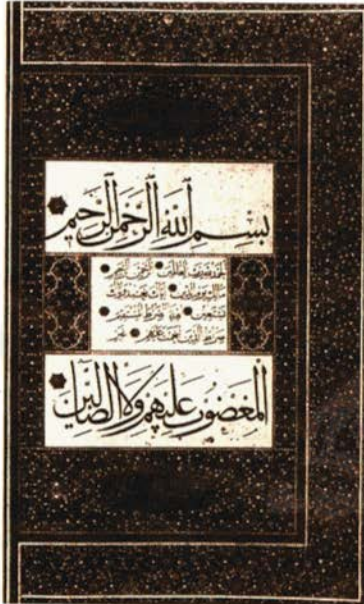 بِسْمِ ٱللَّهِ ٱلرَّحْمَٰنِ ٱلرَّحِيمِ
الحمد لله رب العالمين الرحمن الرحيم
مالك يوم الدين إياك نعبد وإياك
نستعين اهدنا الصراط المستقيم
صراط الذين أنعمت عليهم غير
المغضوب عليهم ولا الضالين